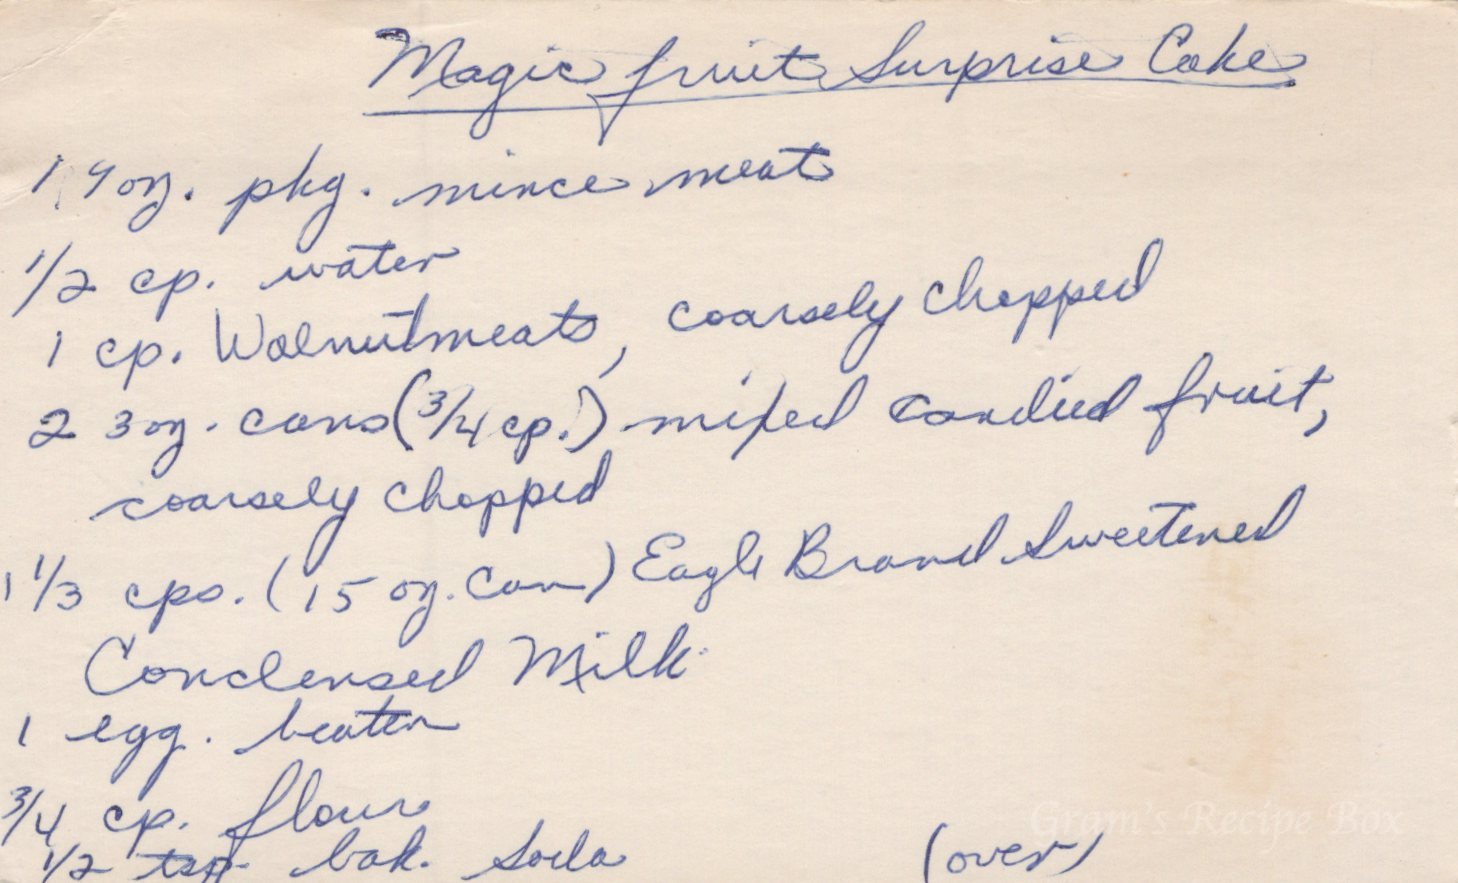 Magic fruit Surprise Cake
1 9 oz. pkg. mince meat
1/2 cp. water
1 cp. Walnutmeats, coarsely chopped
2 3 oz. cans (3/4 cp.) mixed candied fruit,
coarsely chopped
1 1/3 cps. (15 oz. can) Eagle Brand Sweetened
Condensed Milk
1 egg. beaten
3/4 cp. flour
1/2 tsp. bak. Soda
(over)
Gram's Recipe Box